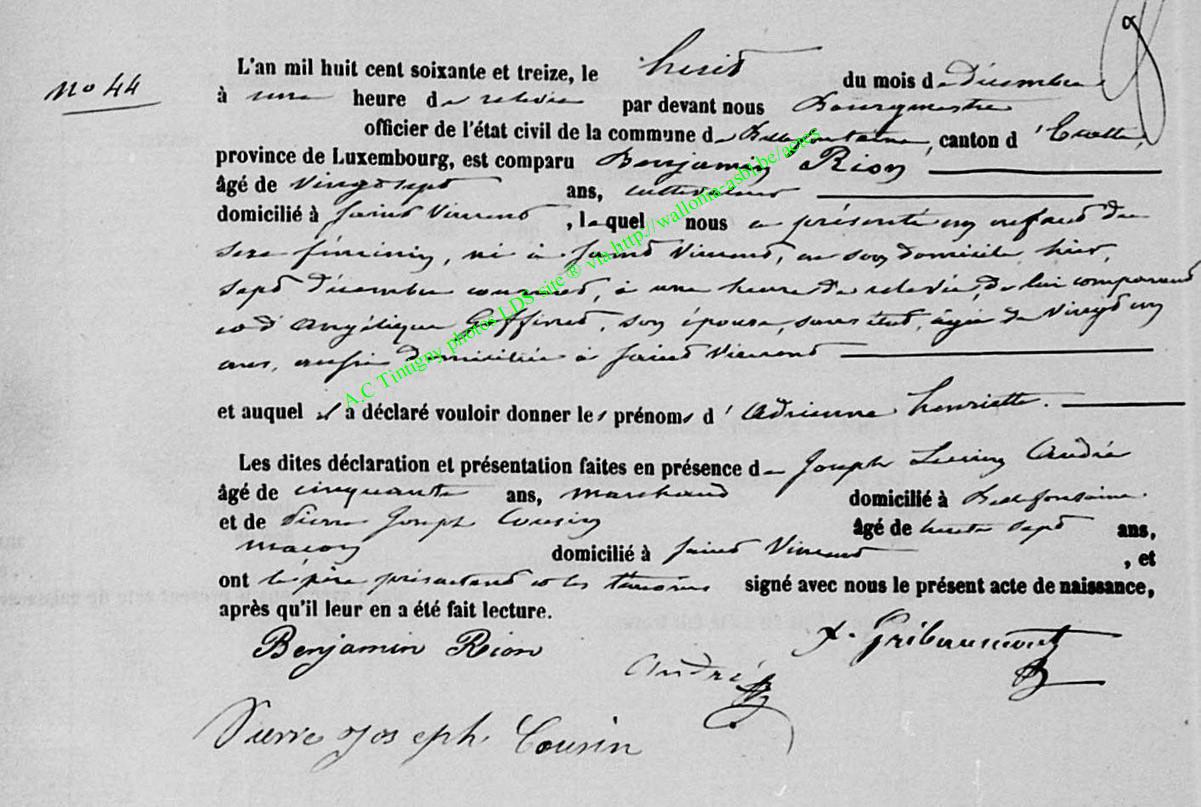 No 44
L'an mil huit cent soixante et treize, le huit du mois de Décembre
à une heure de relevée par devant nous Bourgmestre
officier de l'état civil de la commune de Bellefontaine, canton d'Etalle,
province de Luxembourg, est comparu Benjamin Rion
âgé de vingt sept ans, cultivateur
domicilié à Saint Vincent, lequel nous a présenté un enfant du
sexe féminin, né à Saint Vincent, en son domicile hier,
sept décembre courant, à une heure de relevée, de lui comparant
et d'Angélique Goffinet, son épouse, sans état, âgée de vingt un
ans, aussi domiciliée à Saint Vincent
et auquel il a déclaré vouloir donner les prénoms d'Adrienne Henriette.
Les dites déclaration et présentation faites en présence de Joseph Lucien André
âgé de cinquante ans, marchand domicilié à Bellefontaine
et de Pierre Joseph Cousin âgé de trente sept ans,
maçon domicilié à Saint Vincent, et
ont le père présentant et les témoins signé avec nous le présent acte de naissance,
après qu'il leur en a été fait lecture.
Benjamin Rion
André
Pierre Joseph Cousin
A.C Tintigny photos LDS site ® via http://wallonia-asbl.be/actes